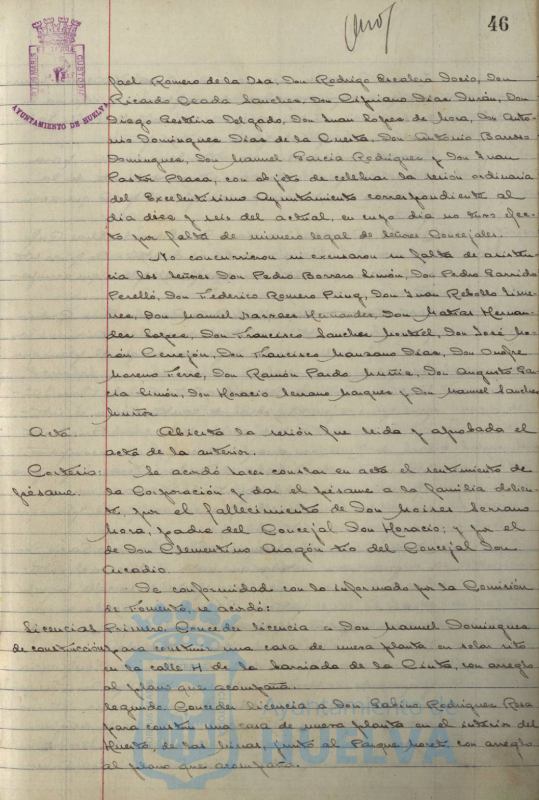 46
AYUNTAMIENTO DE HUELVA
fael Romero de la Osa, Don Rodrigo Escalera Socio, Don
Ricardo Ojeda Sanchez, Don Cipriano Dias Durán, Don
Diego Delgado, Don Juan Lopez de Mora, Don Anto-
nio Dominguez Dias de la Cuesta, Don Antonio Barroso
Dominguez, Don Manuel Garcia Rodriguez y Don Juan
Pastor Plaza, con objeto de celebrar la sesión ordinaria
del Excelentisimo Ayuntamiento correspondiente al
dia diez y seis del actual, en cuyo dia no tuvo efec-
to por falta de número legal de Señores Concejales.
No concurrieron ni excusaron su falta de asisten-
cia los Señores Don Pedro Borrero Limón, Don Pedro Garrido
Perelló, Don Federico Romero Puig, Don Juan Rebollo Jime-
nez, Don Manuel Hernandez, Don Matias Hernan-
dez Lopez, Don Francisco Sanchez Montiel, Don José Mo-
rón Cerrejón, Don Francisco Manzano Dias, Don Onofre
Moreno Don Ramón Pardo Muñiz, Don Augusto Gar-
cia Limón, Don Horacio Serrano Marquez y Don Manuel Sanchez
Muñoz
Acta. Abierta la sesión fue leida y aprobada el
acta de la anterior.
Cortesia: Se acordó hacer constar en acta el sentimiento de
pésame. la Corporación y dar el pésame a la familia dolien-
te, por el fallecimiento de Don Moises Serrano
Mora, padre del Concejal Don Horacio; y por el
de Don Clementino Aragón tio del Concejal Don
Arcadio.
De conformidad con lo informado por la Comisión
de Fomento, se acordó:
Licencias Primero. Conceder licencia a Don Manuel Dominguez
de construcción para construir una casa de nueva planta en solar sito
en la calle H de la barriada de la Cinta, con arreglo
al plano que acompaña.
Segundo. Conceder licencia a Don Sabino Rodriguez Rosa
para construir una casa de nueva planta en el interior del
Huerto, de las junto al Parque con arreglo
al plano que acompaña.
Ayuntamiento de
HUELVA